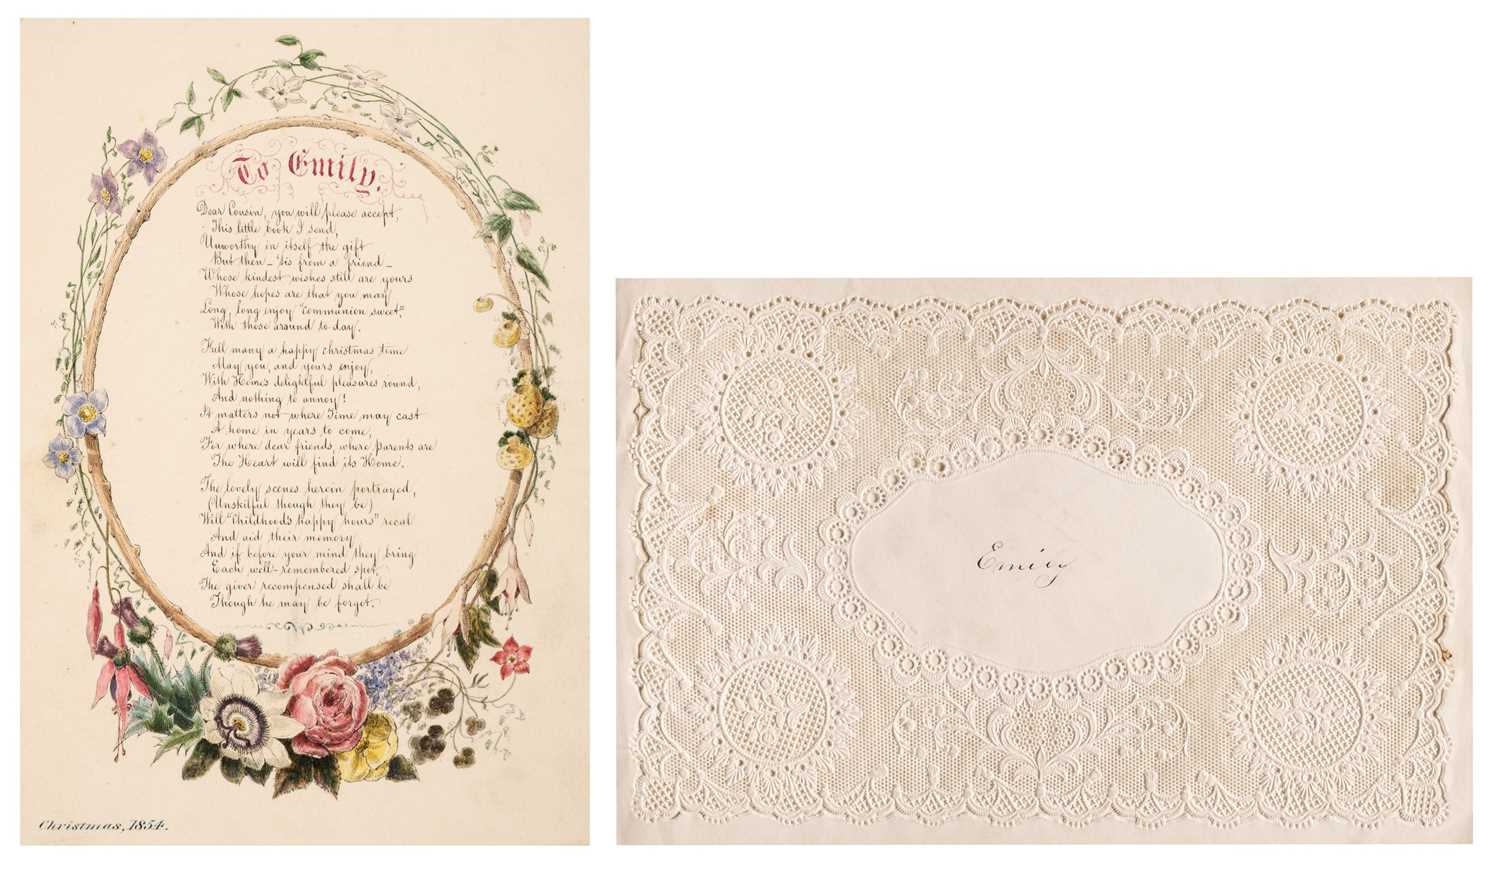 To Emily.
Dear Cousin, you will please accept,
This little book I send,
Unworthy in itself the gift
But then - 'tis from a friend -
Whose kindest wishes still are yours
Whose hopes are that you may
Long, long enjoy "communion sweet",
With those around to-day.
Full many a happy christmas time
May you, and yours enjoy,
With Home's delightful pleasures round,
And nothing to annoy!
It matters not where Time may cast
A home in years to come,
For where dear friends, where parents are
The Heart will find its Home.
The lovely scenes herein portrayed,
(Unskilful though they be)
Will "Childhood's happy hours" recal
And aid their memory
And if before your mind they bring
Each well-remembered spot,
The giver recompensed shall be
Though he may be forgot.
Christmas, 1854.
Emily